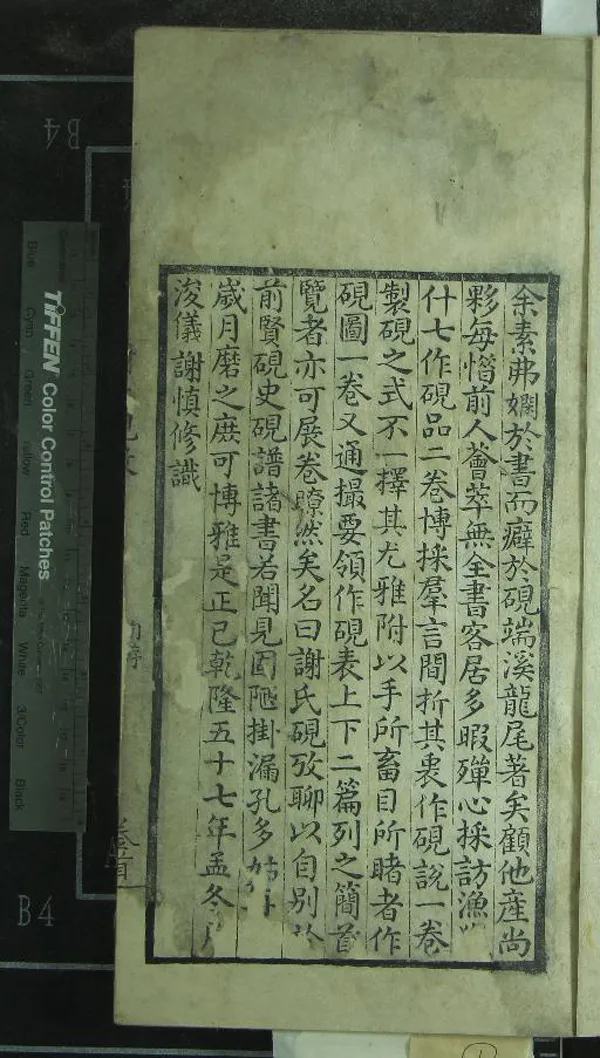 余素弗嫻於書而癖於硯端溪龍尾著矣顧他產尚
夥每惜前人薈萃無全書客居多暇殫心採訪漁
什七作硯品二卷博採羣言間折其衷作硯說一卷
製硯之式不一擇其尤雅附以手所畜目所睹者作
硯圖一卷又通撮要領作硯表上下二篇列之簡首
覽者亦可展卷瞭然矣名曰謝氏硯攷聊以自別於
前賢硯史硯譜諸書若聞見固陋掛漏孔多
歲月磨之庶可博雅是正已乾隆五十七年孟冬月
浚儀謝慎修識
自序
卷首
B4
B4
TIFFEN Color Control Patches
Blue
Cyan
Green
Yellow
Red
Magenta
White
3/Color
Black